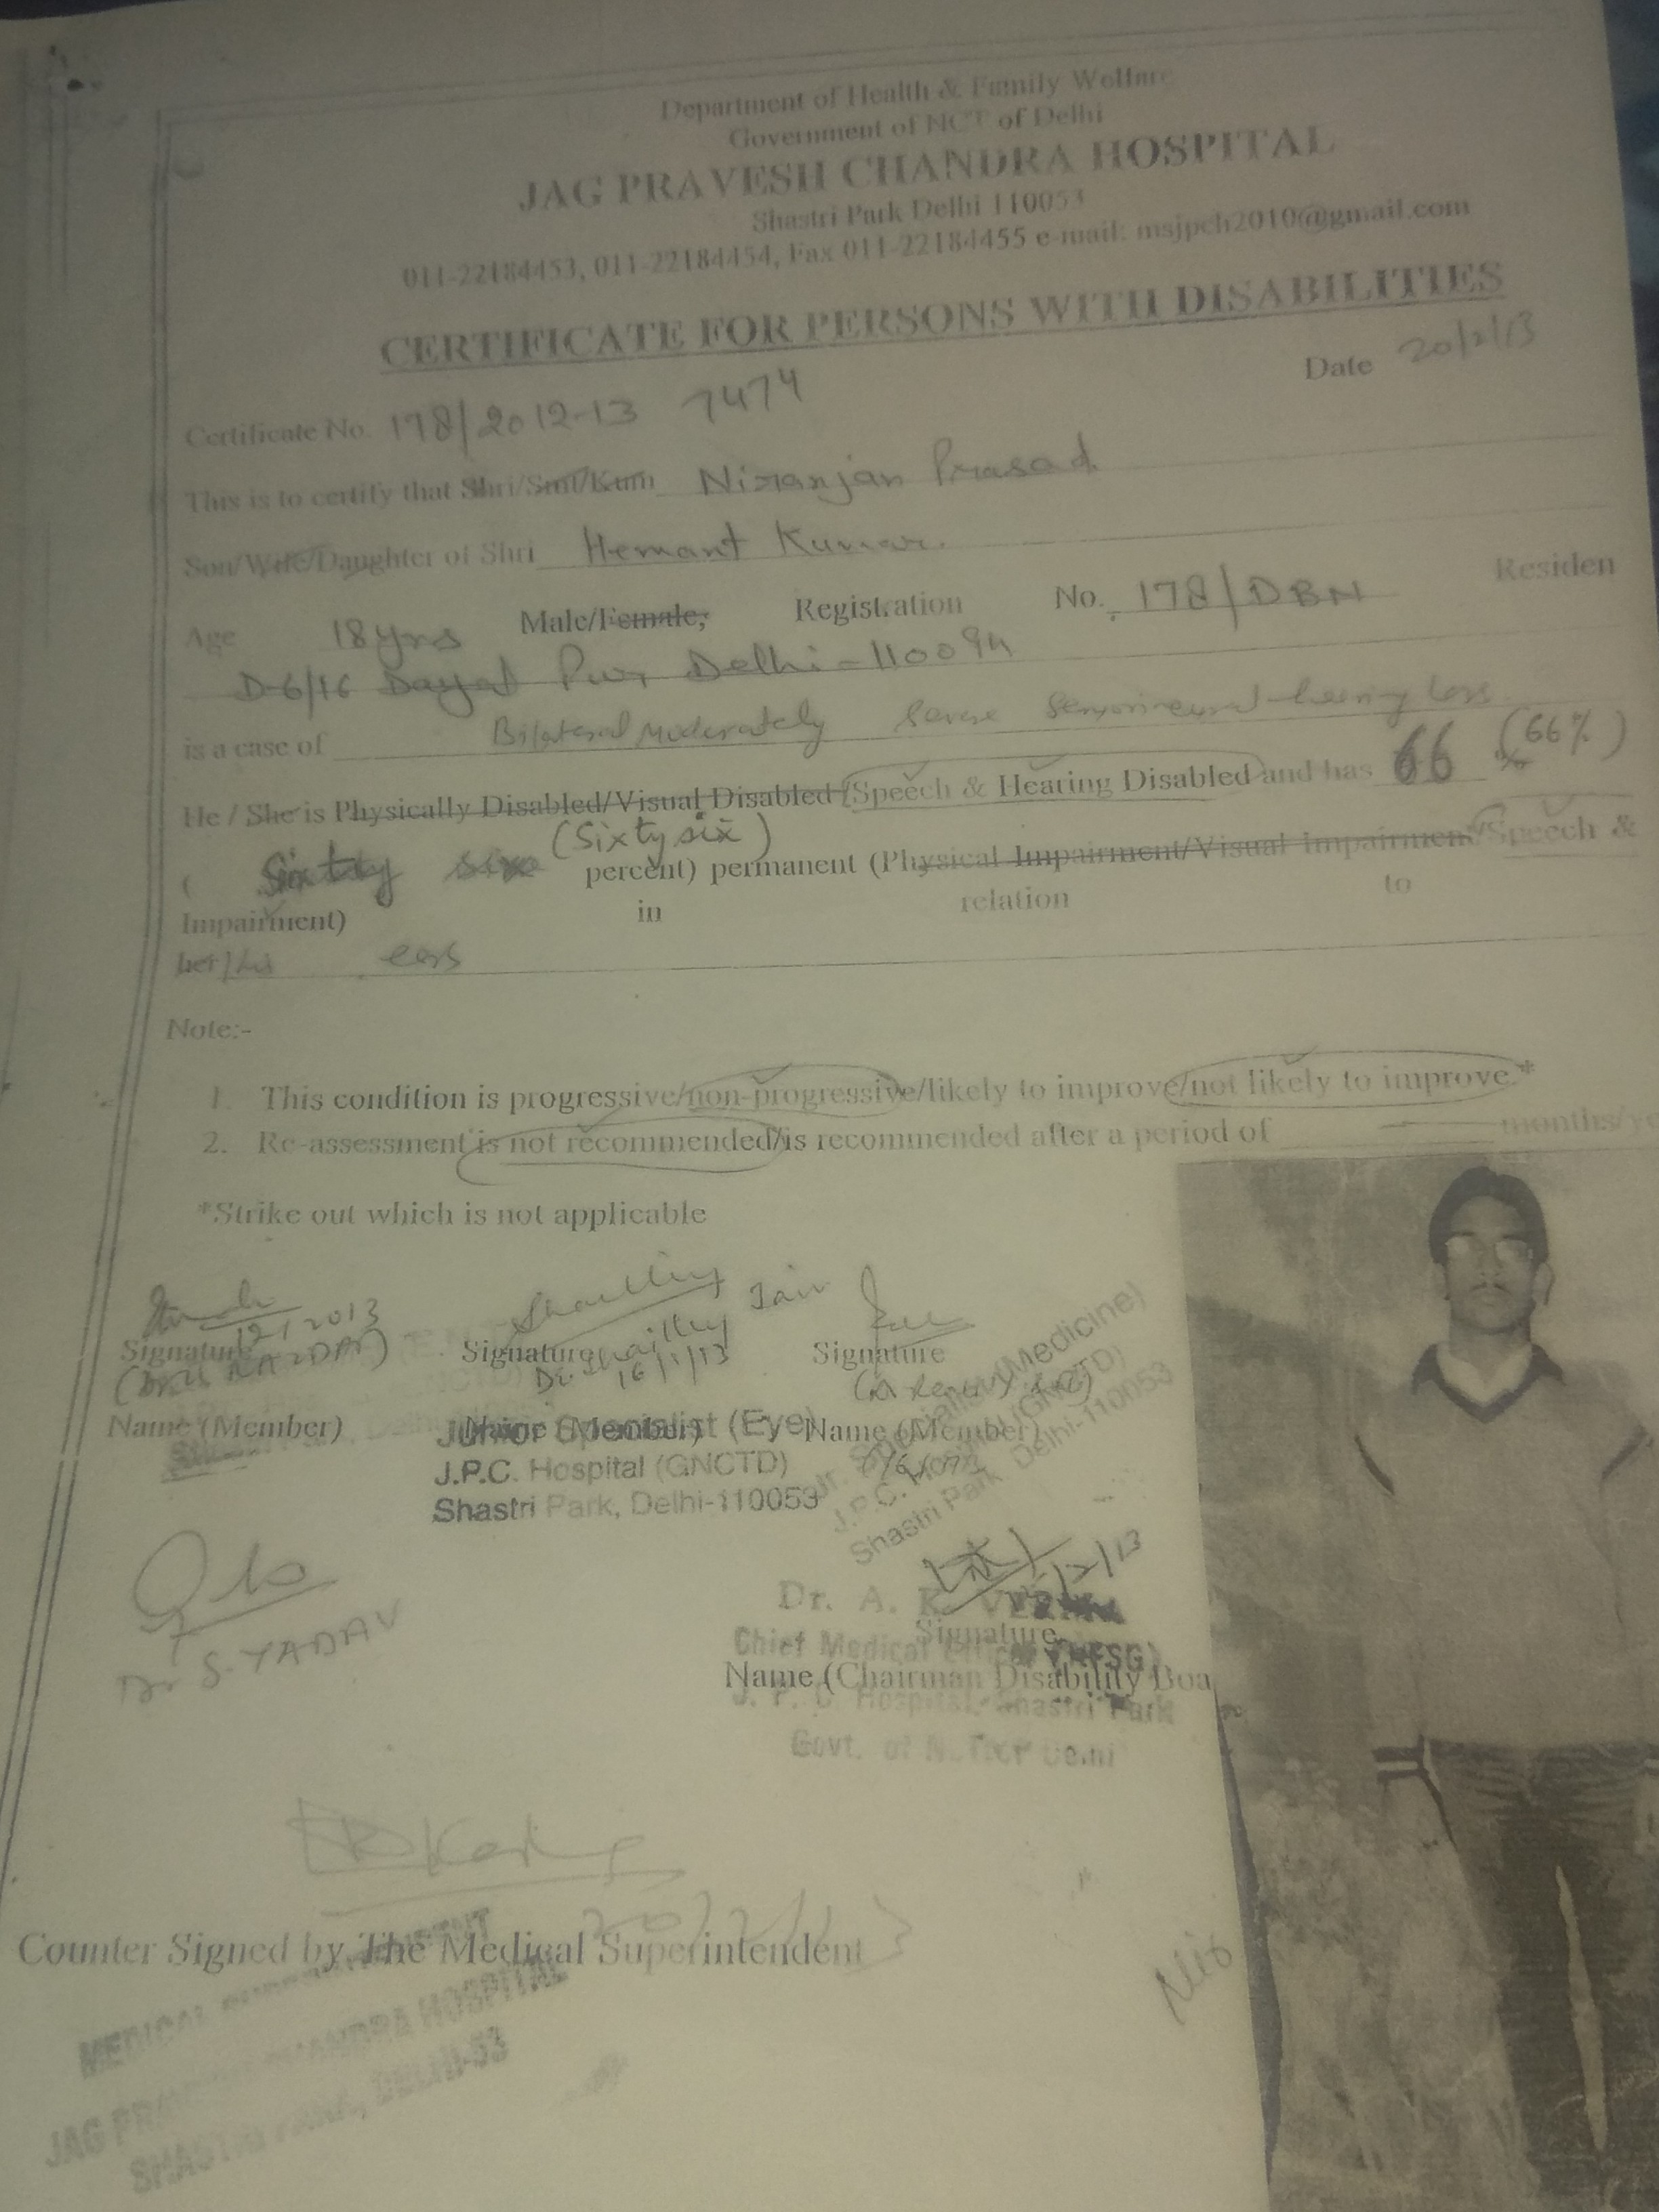 Department of Health & Family Welfare
Government of NCT of Delhi
JAG PRAVESH CHANDRA HOSPITAL
Shastri Park Delhi 110053
011-22184453, 011-22184454, Fax 011-22184455 e-mail: msjpch2010@gmail.com
CERTIFICATE FOR PERSONS WITH DISABILITIES
Date 20/2/13
Certificate No. 178/2012-13 7474
This is to certify that Shri/Smt/Kum Niranjan Prasad
Son/Wife/Daughter of Shri Hemant Kumar.
Age 18yrs Male/Female, Registration No. 178/DBN Residen
D-6/16 Dayal Pur Delhi-110094
is a case of Bilateral Moderately Severe Sensorineural hearing loss
He / She is Physically Disabled/Visual Disabled/Speech & Hearing Disabled and has 66 % (66%)
(Sixty six)
( Sixty six percent) permanent (Physical Impairment/Visual Impairment/Speech &
Impairment) in relation to
her/his ears
Note:-
1. This condition is progressive/non-progressive/likely to improve/not likely to improve*
2. Re-assessment is not recommended/is recommended after a period of months/ye
*Strike out which is not applicable
Shailly Jain
Signature Signature Signature
Dr. Shailly
16/1/13
Name (Member) Name (Member) Name (Member)
Junior Specialist (Eye)
J.P.C. Hospital (GNCTD)
Shastri Park, Delhi-110053
Jr. Specialist (Medicine)
J.P.C. Hospital (GNCTD)
Shastri Park Delhi-110053
Dr S. YADAV
Dr. A. K. VERMA
Signature
Chief Medical Officer (NFSG)
Name (Chairman Disability Boa
J. P. C. Hospital, Shastri Park
Govt. of N.C.T. of Delhi
20/2/13
Counter Signed by The Medical Superintendent
MEDICAL SUPERINTENDENT
JAG PRAVESH CHANDRA HOSPITAL
SHASTRI PARK, DELHI-53